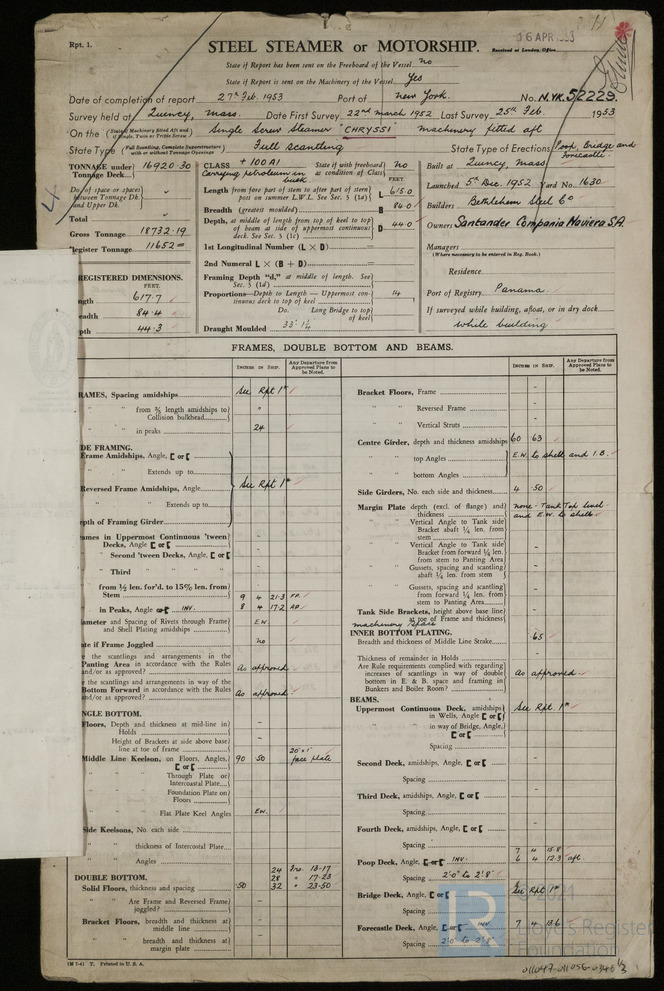 Rpt. 1.
16 APR 1953
STEEL STEAMER or MOTORSHIP.
Received at London Office
State if Report has been sent on the Freeboard of the Vessel no
State if Report is sent on the Machinery of the Vessel Yes
Date of completion of report 27th Feb. 1953 Port of New York. No. N.YK. 52229.
Survey held at Quincy, Mass. Date First Survey 22nd March 1952 Last Survey 25th Feb 1953
On the (State if Machinery fitted Aft and if Single, Twin or Triple Screw) Single Screw Steamer "CHRYSSI" machinery fitted aft
State Type (Full Scantling, Complete Superstructure with or without Tonnage Openings) Full scantling State Type of Erections Poop, Bridge and Forecastle.
TONNAGE under Tonnage Deck 16920.30
Do. of space or spaces between Tonnage Dk. and Upper Dk.
Total
Gross Tonnage 18732.19
Register Tonnage 11652
CLASS +100A1 State if with freeboard as condition of Class no
Carrying petroleum in bulk
FEET.
Length from fore part of stem to after part of stern post on summer L.W.L. See Sec. 5 (1a) L 615.0
Breadth (greatest moulded) B 84.0
Depth, at middle of length from top of keel to top of beam at side of uppermost continuous deck. See Sec. 5 (1c) D 44.0
1st Longitudinal Number (L × D)
2nd Numeral L × (B + D)
Framing Depth "d," at middle of length. See Sec. 5 (1d)
Proportions—Depth to Length—Uppermost continuous deck to top of keel 14
Do. Long Bridge to top of keel
Draught Moulded
Built at Quincy, Mass
Launched 5th Dec. 1952 Yard No. 1630
Builders Bethlehem Steel Co
Owners Santander Compania Naviera S.A.
Managers
(Where necessary to be entered in Reg. Book.)
Residence
Port of Registry Panama
If surveyed while building, afloat, or in dry dock
While building
REGISTERED DIMENSIONS.
FEET.
ngth 617.7
eadth 84.4
pth 44.3
FRAMES, DOUBLE BOTTOM AND BEAMS.
INCHES IN SHIP. Any Departure from Approved Plans to be Noted.
RAMES, Spacing amidships See Rpt 1*
from ⅗ length amidships to Collision bulkhead "
in peaks 24
DE FRAMING.
Frame Amidships, Angle, [ or [
Extends up to
Reversed Frame Amidships, Angle See Rpt 1*
Extends up to
epth of Framing Girder
ames in Uppermost Continuous 'tween Decks, Angle [ or [ -
Second 'tween Decks, Angle [ or [ -
Third -
from ½ len. for'd. to 15% len. from Stem 9 4 21.3
in Peaks, Angle or [ INV. 8 4 17.2
ameter and Spacing of Rivets through Frame and Shell Plating amidships E.W.
ate if Frame Joggled no
e the scantlings and arrangements in the Panting Area in accordance with the Rules and/or as approved? As approved
e the scantlings and arrangements in way of the Bottom Forward in accordance with the Rules and/or as approved? As approved
NGLE BOTTOM.
Floors, Depth and thickness at mid-line in Holds -
Height of Brackets at side above base line at toe of frame -
Middle Line Keelson, on Floors, Angles, [ or [ 90 50 20" x 1" face plate
Through Plate or Intercostal Plate
Foundation Plate on Floors
Flat Plate Keel Angles E.W.
Side Keelsons, No. each side -
thickness of Intercostal Plate -
Angles -
DOUBLE BOTTOM.
Solid Floors, thickness and spacing .50
24 Frs. 13-17
28 " 17-23
32 " 23-50
Are Frame and Reversed Frame joggled? -
Bracket Floors, breadth and thickness at middle line -
breadth and thickness at margin plate -
INCHES IN SHIP. Any Departure from Approved Plans to be Noted.
Bracket Floors, Frame -
Reversed Frame -
Vertical Struts -
Centre Girder, depth and thickness amidships 60 63
top Angles E.W. to shell and I.B.
bottom Angles
Side Girders, No. each side and thickness 4 .50
Margin Plate depth (excl. of flange) and thickness none - Tank Top level and E.W. to shell
Vertical Angle to Tank side Bracket abaft ¼ len. from stem -
Vertical Angle to Tank side Bracket from forward ¼ len. from stem to Panting Area -
Gussets, spacing and scantling abaft ¼ len. from stem -
Gussets, spacing and scantling from forward ¼ len. from stem to Panting Area -
Tank Side Brackets, height above base line at toe of Frame and thickness -
machinery space
INNER BOTTOM PLATING.
Breadth and thickness of Middle Line Strake .65
Thickness of remainder in Holds -
Are Rule requirements complied with regarding increases of scantlings in way of double bottom in E. & B. space and framing in Bunkers and Boiler Room? As approved
BEAMS.
Uppermost Continuous Deck, amidships in Wells, Angle [ or [ See Rpt 1*
in way of Bridge, Angle, [ or [ -
Spacing -
Second Deck, amidships, Angle, [ or [ -
Spacing -
Third Deck, amidships, Angle, [ or [ -
Spacing -
Fourth Deck, amidships, Angle, [ or [ -
Spacing
Poop Deck, Angle, [ or [ INV.
7 4 15.8
6 4 12.3 aft.
Spacing 2'.0" to 2'.8"
Bridge Deck, Angle, [ or [ See Rpt 1*
Spacing
Forecastle Deck, Angle, [ or [ INV 7 4 13.6
Spacing 2'.0" to 2'.8"
Printed in U.S.A.
© 2021
Lloyd's Register
Foundation
011047-011056-0346 1/2